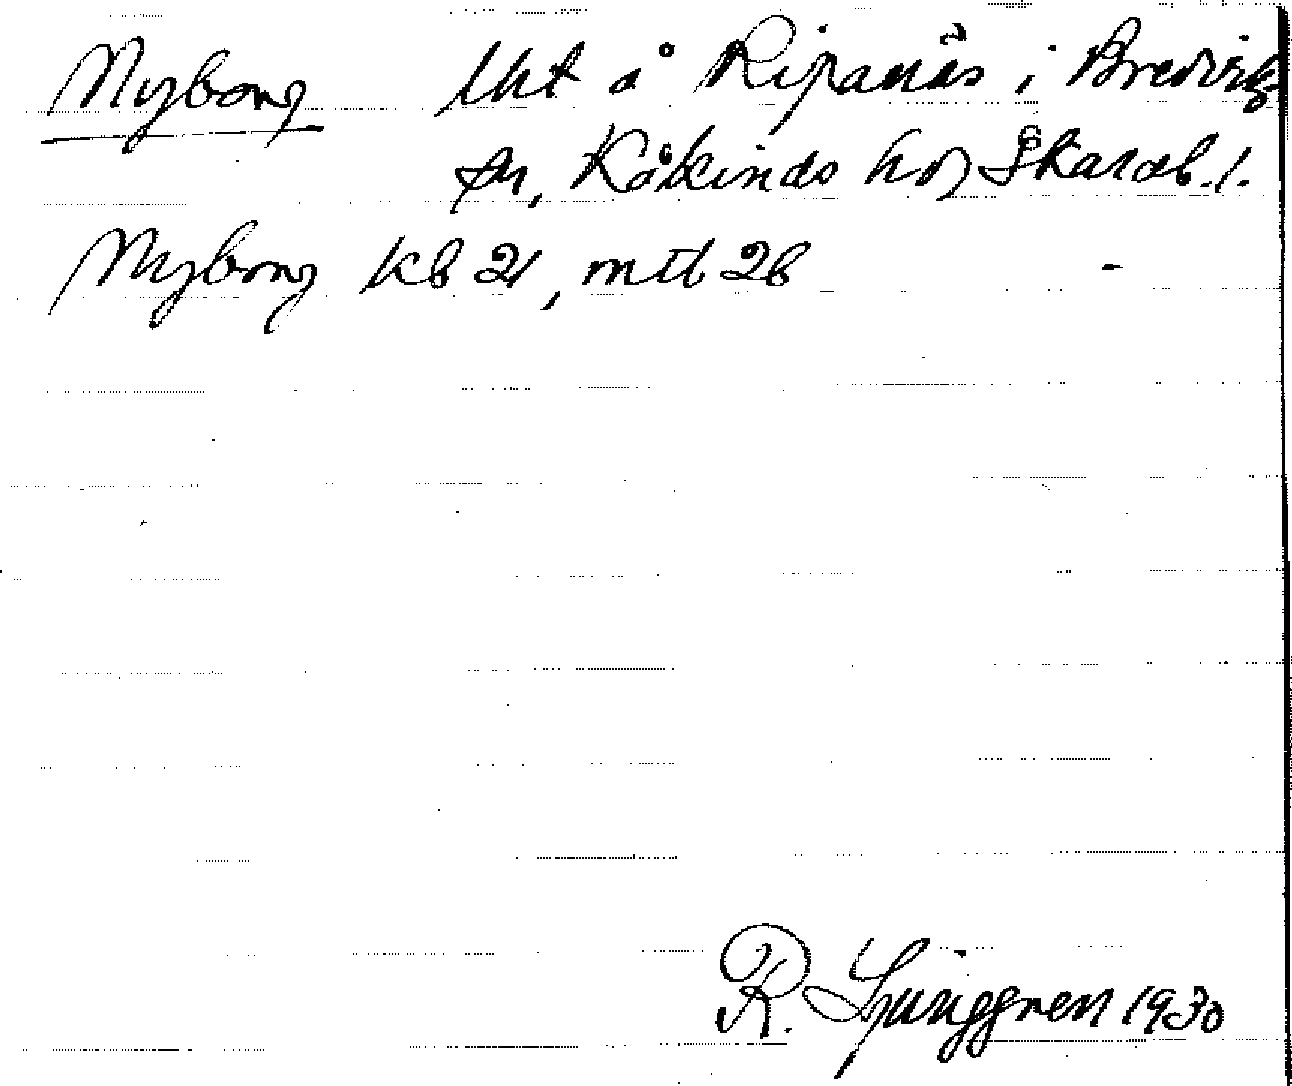 Nyborg lht å Ripanäs i Bredviks
sn, Kåkinds hd Skarab. l.
Nyborg kb 21, mtl 28
R. Ljunggren 1930